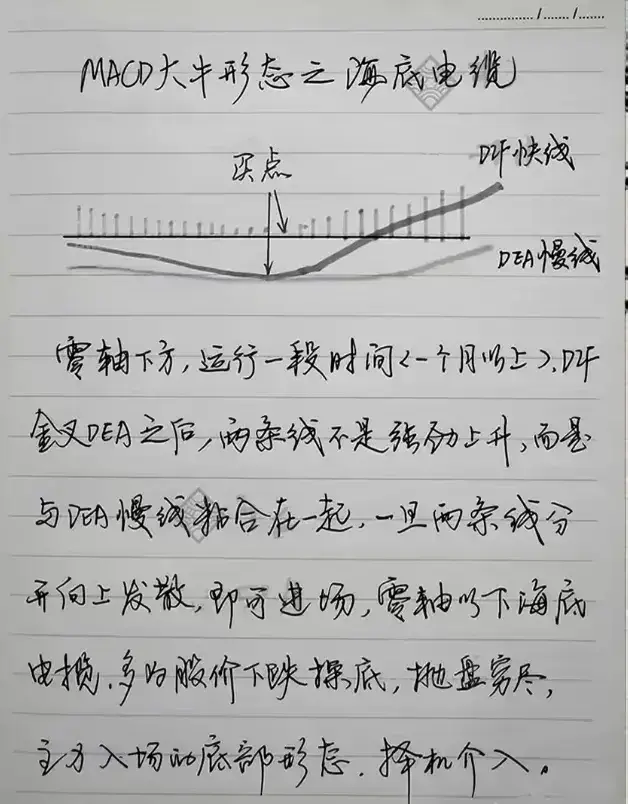 MACD大牛形态之海底电缆
买点
DIF快线
DEA慢线
零轴下方,运行一段时间<一个月以上>,DIF
金叉DEA之后,两条线不是强劲上升,而是
与DEA慢线粘合在一起,一旦两条线分
开向上发散,即可进场,零轴以下海底
电揽,多为股价下跌探底,抛盘穷尽,
主力入场的底部形态,择机介入。